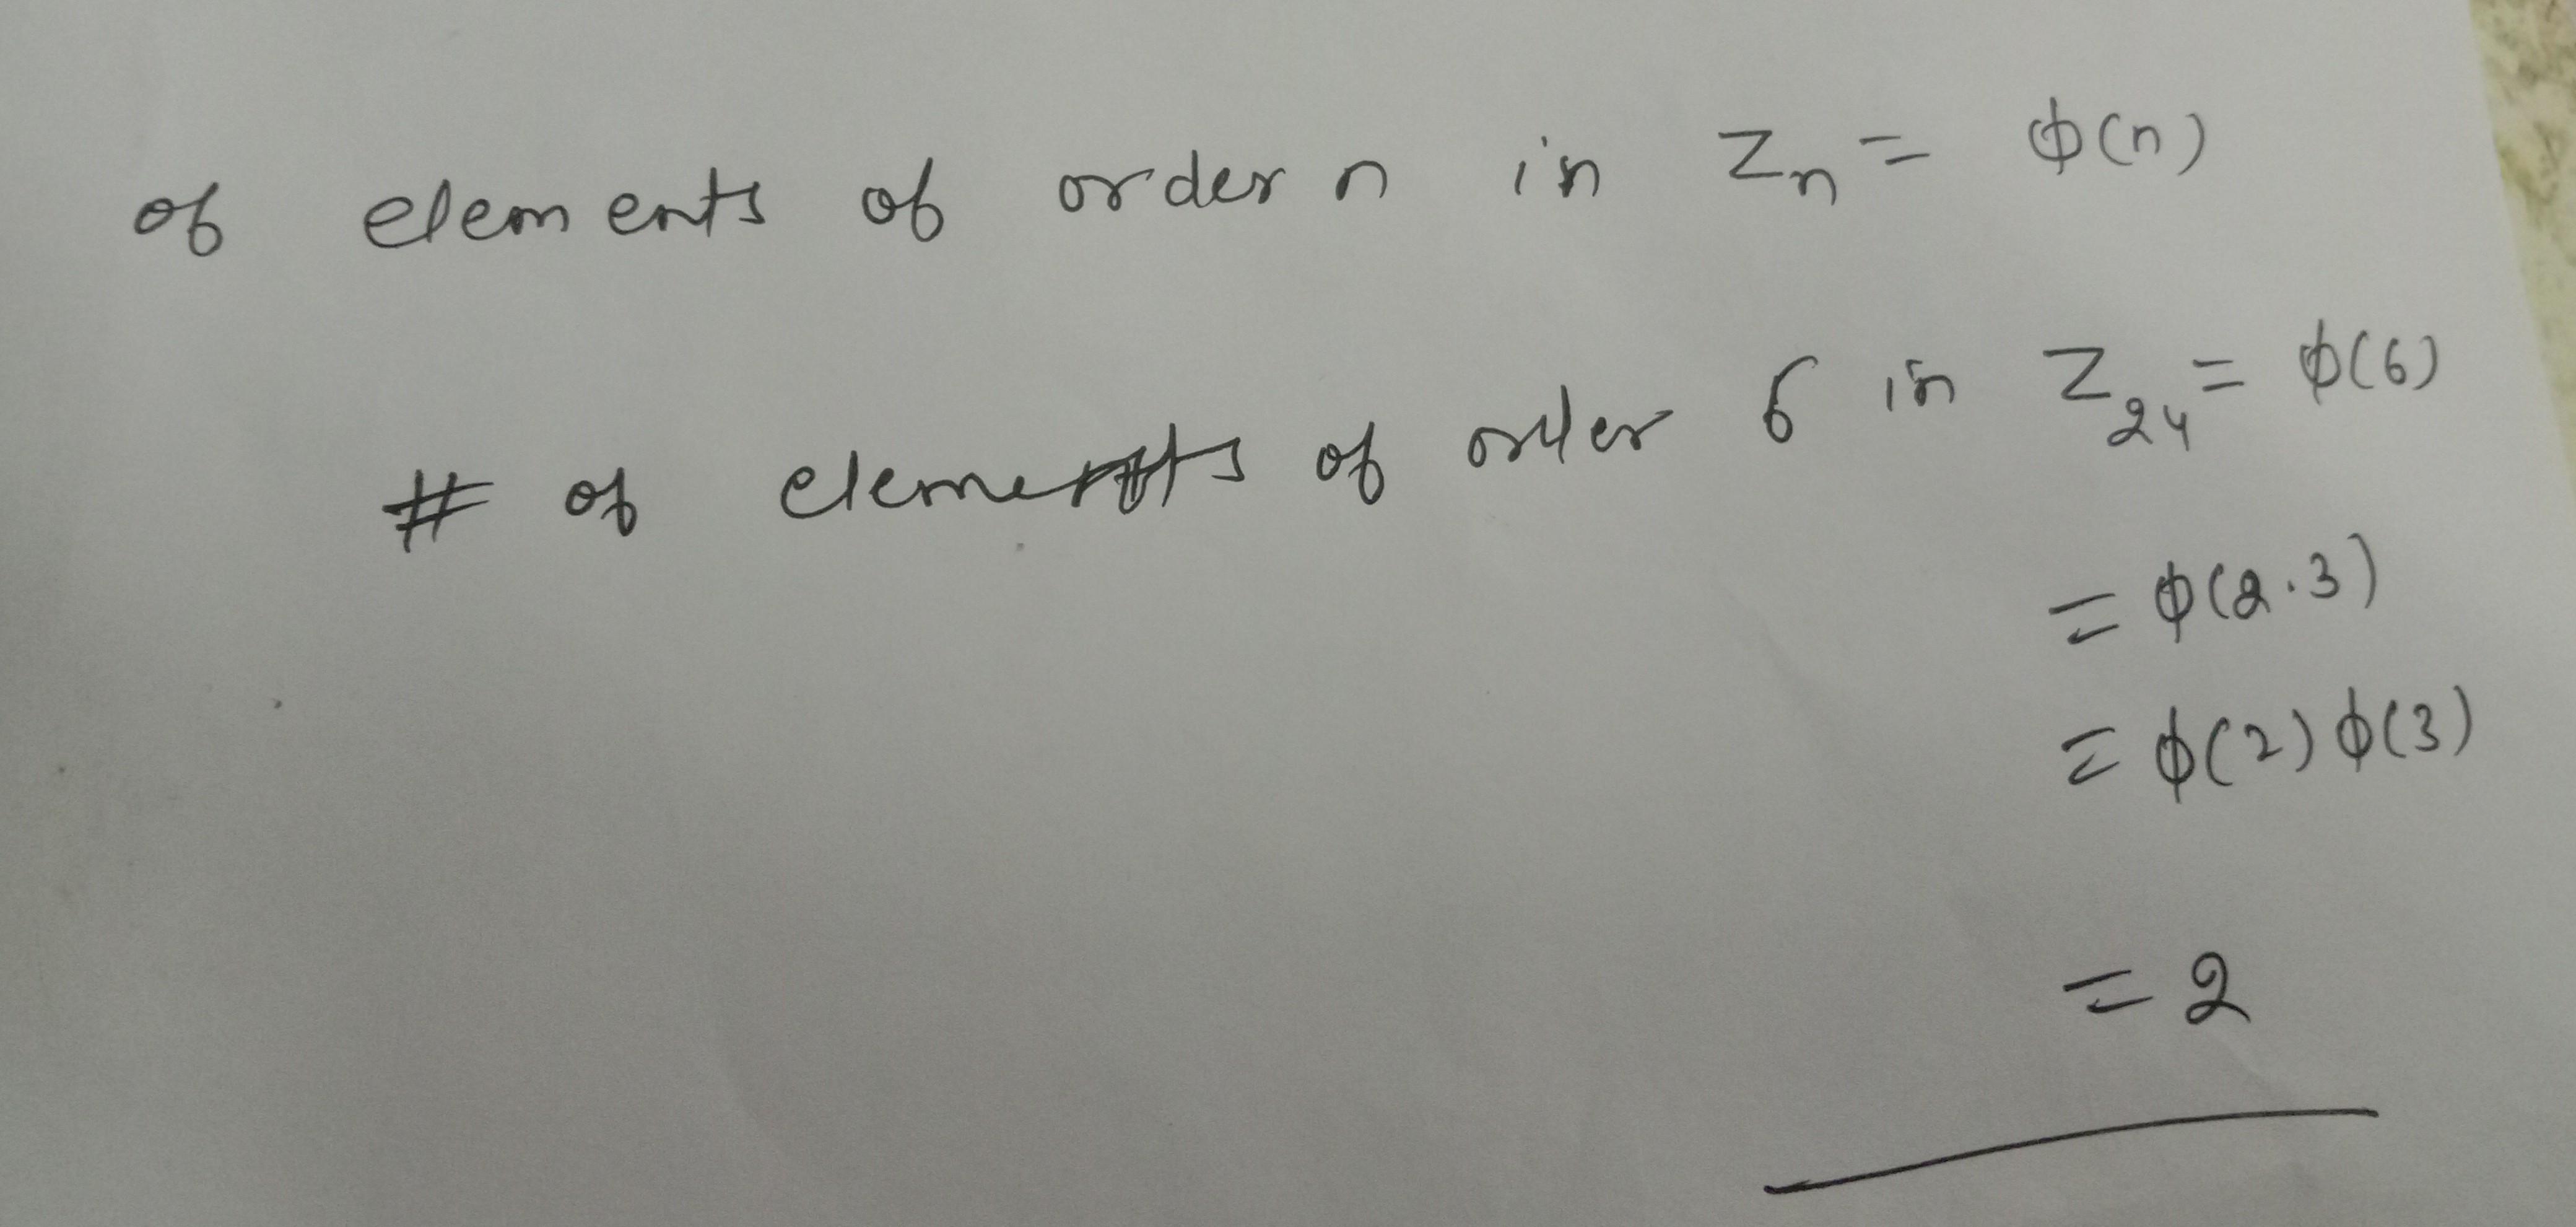 of elements of order n in Zₙ = ϕ(n)
# of elements of order 6 in Z₂₄ = ϕ(6)
= ϕ(2.3)
= ϕ(2) ϕ(3)
= 2